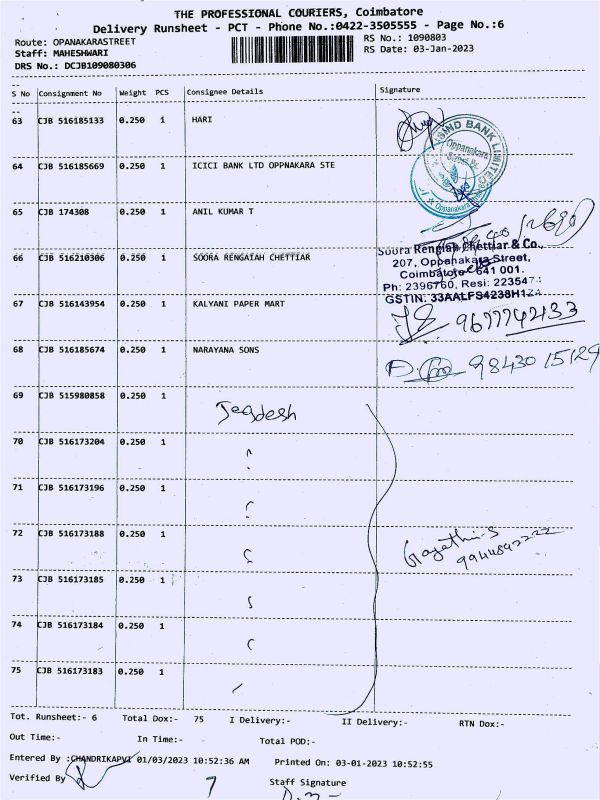 THE PROFESSIONAL COURIERS, Coimbatore
Delivery Runsheet - PCT - Phone No.:0422-3505555 - Page No.:6
Route: OPANAKARASTREET
RS No.: 1090803
Staff: MAHESHWARI
RS Date: 03-Jan-2023
DRS No.: DCJB109080306
S No Consignment No Weight PCS Consignee Details Signature
63 CJB 516185133 0.250 1 HARI
64 CJB 516185669 0.250 1 ICICI BANK LTD OPPNAKARA STE
65 CJB 174308 0.250 1 ANIL KUMAR T
66 CJB 516210306 0.250 1 SOORA RENGAIAH CHETTIAR
Soora Rengiah Chettiar & Co.,
207, Oppanakara Street,
Coimbatore - 641 001.
Ph: 2396760, Resi: 223547
GSTIN: 33AALFS4238H1Z4
67 CJB 516143954 0.250 1 KALYANI PAPER MART
9677742133
68 CJB 516185674 0.250 1 NARAYANA SONS
98430 15129
69 CJB 515980858 0.250 1 Jegdesh
70 CJB 516173204 0.250 1
71 CJB 516173196 0.250 1
72 CJB 516173188 0.250 1 Gayathri-S
9944892222
73 CJB 516173185 0.250 1
74 CJB 516173184 0.250 1
75 CJB 516173183 0.250 1
Tot. Runsheet:- 6 Total Dox:- 75 I Delivery:- II Delivery:- RTN Dox:-
Out Time:- In Time:- Total POD:-
Entered By :CHANDRIKAPVT 01/03/2023 10:52:36 AM Printed On: 03-01-2023 10:52:55
Verified By 7 Staff Signature